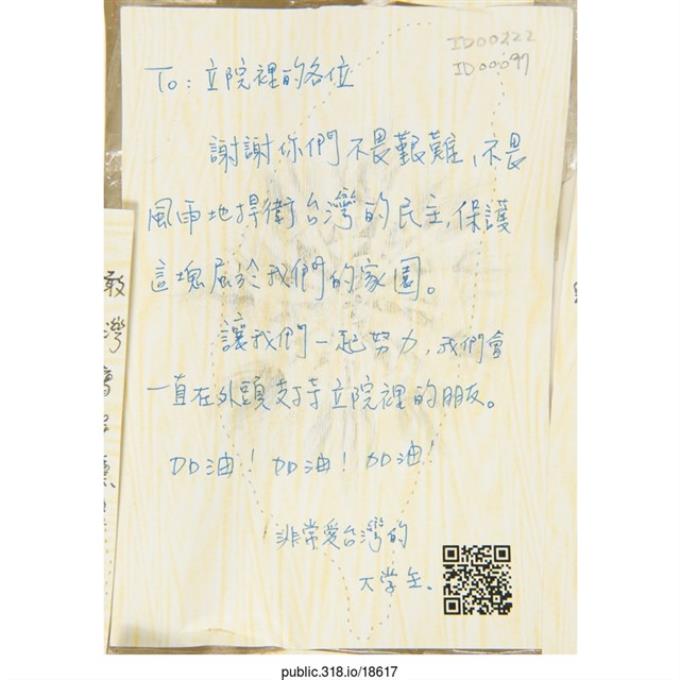 ID00222
ID00097
To：立院裡的各位
謝謝你們不畏艱難,不畏
風雨地捍衛台灣的民主,保護
這塊屬於我們的家園。
讓我們一起努力,我們會
一直在外頭支持立院裡的朋友。
加油！加油！加油！
非常愛台灣的
大學生.
敢
灣
public.318.io/18617